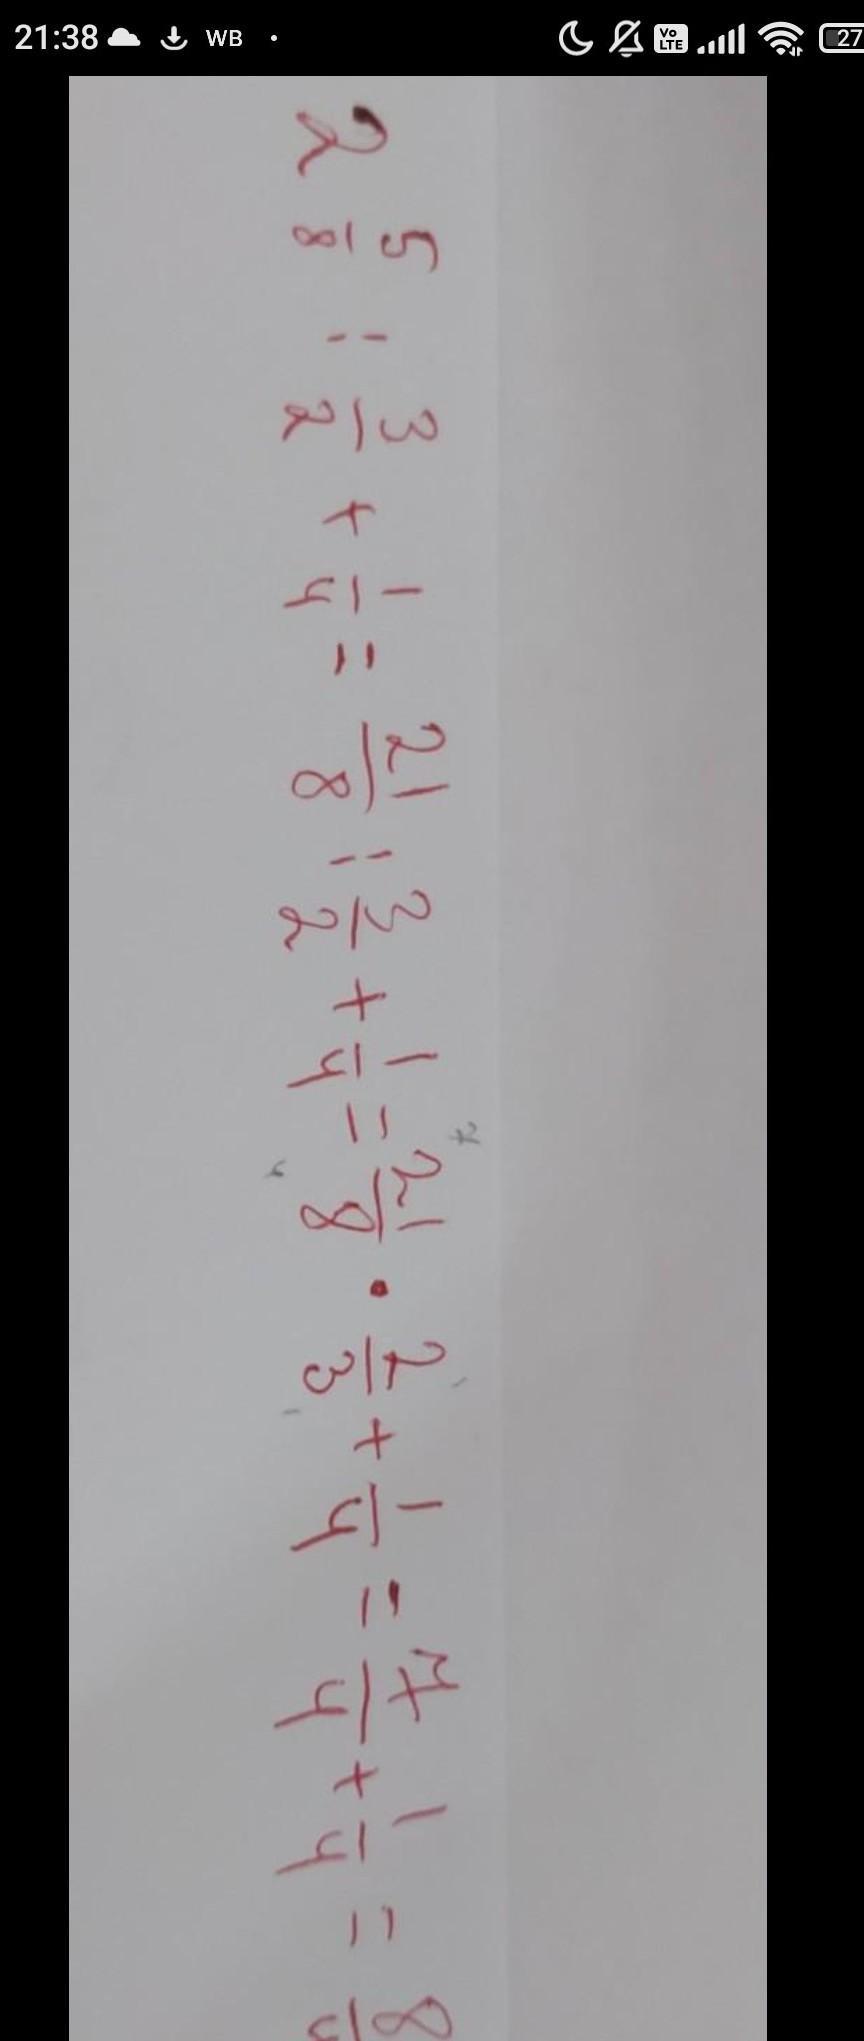 21:38 WB · Vo LTE 27
2 5/8 : 3/2 + 1/4 = 21/8 : 3/2 + 1/4 = 21/8 · 2/3 + 1/4 = 7/4 + 1/4 = 8/4